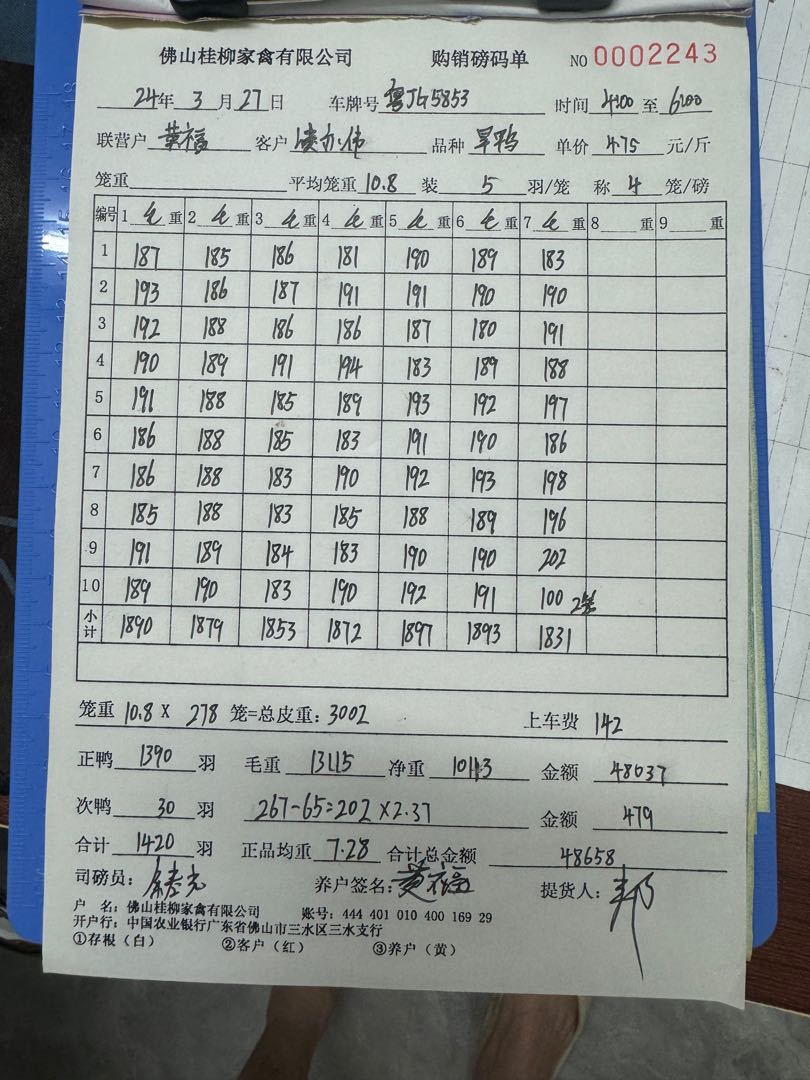 佛山桂柳家禽有限公司 购销磅码单 NO 0002243
24年 3月27日 车牌号 粤JG5853 时间 4:00 至 6:00
联营户 黄福 客户 品种 旱鸭 单价 4.75 元/斤
笼重 平均笼重 10.8 装 5 羽/笼 称 4 笼/磅
编号 1 毛重 2 毛重 3 毛重 4 毛重 5 毛重 6 毛重 7 毛重 8 重 9 重
1 187 185 186 181 190 189 183
2 193 186 187 191 191 190 190
3 192 188 186 186 187 180 191
4 190 189 191 194 183 189 188
5 191 188 185 189 193 192 197
6 186 188 185 183 191 190 186
7 186 188 183 190 192 193 198
8 185 188 183 185 188 189 196
9 191 189 184 183 190 190 202
10 189 190 183 190 192 191 100 2笼
小计 1890 1879 1853 1872 1897 1893 1831
笼重 10.8 X 278 笼=总皮重: 3002 上车费 142
正鸭 1390 羽 毛重 13115 净重 10113 金额 48037
次鸭 30 羽 267-65=202×2.37 金额 479
合计 1420 羽 正品均重 7.28 合计总金额 48658
司磅员: 养户签名: 黄福 提货人: 邦
户 名: 佛山桂柳家禽有限公司 账号: 444 401 010 400 169 29
开户行: 中国农业银行广东省佛山市三水区三水支行
①存根（白） ②客户（红） ③养户（黄）